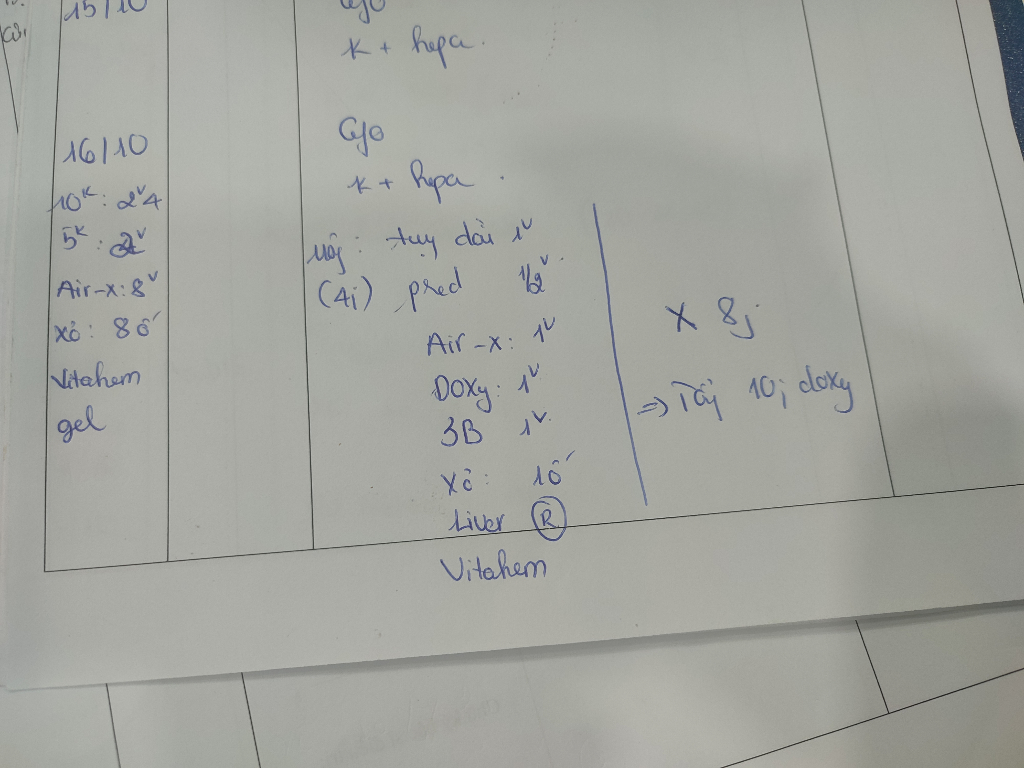 15/10
K + hepa.
16/10
K + hepa.
10ᴷ: 2ᵛ4
5ᴷ: 2ᵛ
Air-x: 8ᵛ
xổ: 8 ố
Vitahem
gel
Uống: tuỵ dài 1ᵛ
(4j) pred 1/2ᵛ
Air-x: 1ᵛ
Doxy: 1ᵛ
3B 1ᵛ
xổ: 1ố
Liver Ⓡ
Vitahem
x 8j
=> 10j doxy